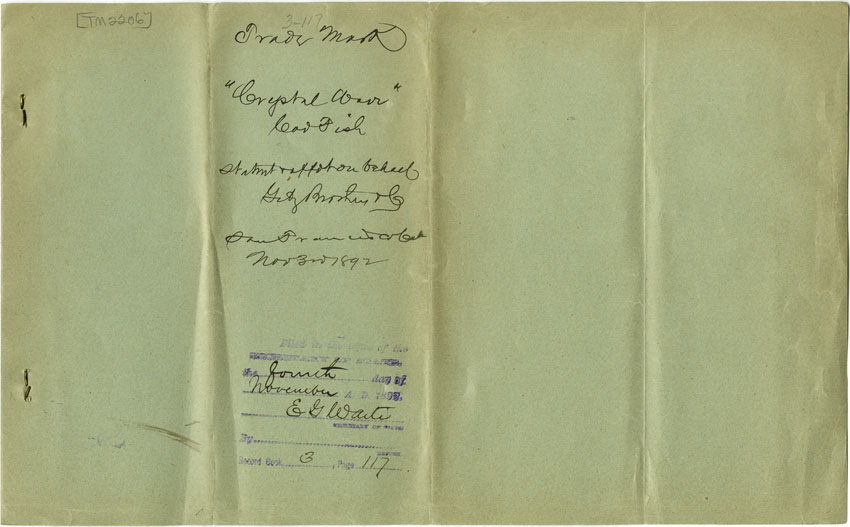 [TM2206]
3-117
Trade Mark
"Crystal Wave"
Cod Fish
Statmt & affdt on behalf
Getz Brothers & Co
San Francisco Cal
Nov 3rd 1892
Filed in the office of the
SECRETARY OF STATE,
the fourth day of
November A. D. 1892,
E G Waite
SECRETARY OF STATE
By
DEPUTY
Record Book 3, Page 117